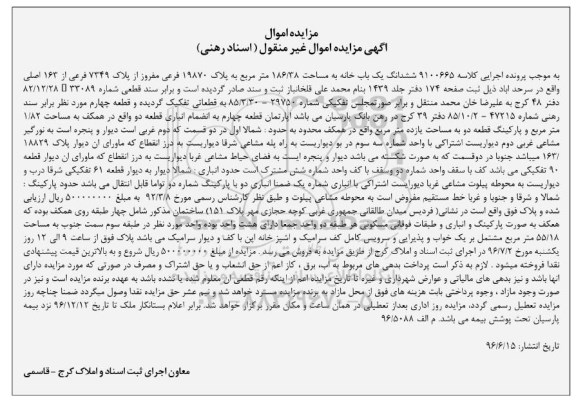 مزایده اموال
آگهی مزایده اموال غیر منقول (اسناد رهنی)
به موجب پرونده اجرایی کلاسه ۹۱۰۰۶۶۵ ششدانگ یک باب خانه به مساحت ۱۸۶/۳۸ متر مربع به پلاک ۱۹۸۷۰ فرعی مفروز از پلاک ۷۳۴۹ فرعی از ۱۶۳ اصلی
واقع در سرحد آباد ذیل ثبت صفحه ۱۷۴ دفتر جلد ۱۴۳۹ بنام محمد علی قلخانباز ثبت و سند صادر گردیده است و برابر سند قطعی شماره ۳۳۰۸۹ ۸۲/۱۲/۲۸
دفتر ۴۸ کرج به علیرضا خان محمد منتقل و برابر صورتمجلس تفکیکی شماره ۲۹۷۵۰ – ۸۵/۳/۳۰ به قطعاتی تفکیک گردیده و قطعه چهارم مورد نظر برابر سند
رهنی شماره ۴۷۲۱۵ – ۸۵/۱۰/۲ دفتر ۳۹ کرج در رهن بانک پارسیان می باشد آپارتمان قطعه چهارم به انضمام انباری قطعه دو واقع در همکف به مساحت ۱/۸۲
متر مربع و پارکینگ قطعه دو به مساحت یازده متر مربع واقع در همکف محدود به حدود : شمالا اول در دو قسمت که دوم غربی است دیوار و پنجره است به نورگیر
مشاعی غربی دوم دیواریست اشتراکی با واحد شماره سه سوم در بو دیواریست به راه پله مشاعی شرقا دیواریست به درز انقطاع که ماورای ان دیوار پلاک ۱۸۸۲۹
/۱۶۳ میباشد جنوبا در دوقسمت که به صورت شکسته می باشد دیوار و پنجره ایست به فضای حیاط مشاعی غربا دیواریست به درز انقطاع که ماورای ان دیوار قطعه
۹۰ تفکیکی می باشد کف با سقف واحد شماره دو وسقف با کف واحد شماره شش مشترک است حدود انباری : شمالا دیوار به دیوار قطعه ۶۱ تفکیکی شرقا درب و
دیواریست به محوطه پیلوت مشاعی غربا دیواریست اشتراکی با انباری شماره یک ضمنا انباری دو با پارکینگ شماره دو تواما قابل انتقال می باشد حدود پارکینگ :
شمالا و شرقا و جنوبا و غربا خط مستقیم مفروض است به محوطه مشاعی پیلوت و طبق نظر کارشناس رسمی مورخ ۹۲/۳/۸ به مبلغ ۵۰۰۰۰۰۰۰۰ ریال ارزیابی
شده و پلاک فوق واقع است در نشانی( فردیس میدان طالقانی جمهوری غربی کوچه حجازی مهر پلاک ۱۵۱) ساختمان مذکور شامل چهار طبقه روی همکف بوده که
همکف به صورت پارکینگ و انباری و طبقات فوقانی مسکونی هر طبقه دو واحد جمعا دارای هشت واحد بوده واحد مورد نظر در طبقه سوم سمت جنوب به مساحت
۵۵/۱۸ متر مربع مشتمل بر یک خواب و پذیرایی و سرویس کامل کف سرامیک و آشپز خانه اپن با کف و دیوار سرامیک می باشد پلاک فوق از ساعت ۹ الی ۱۲ روز
یکشنبه مورخ ۹۶/۷/۲ در اجرای ثبت اسناد و املاک کرج از طریق مزایده به فروش می رسد. مزایده از مبلغ ۵۰۰۰۰۰۰۰۰ ریال شروع و به بالاترین قیمت پیشنهادی
نقدا فروخته میشود . لازم به ذکر است پرداخت بدهی های مربوط به آب، برق ، گاز اعم از حق انشعاب و یا حق اشتراک و مصرف در صورتی که مورد مزایده دارای
انها باشد و نیز بدهی های مالیاتی و عوارض شهرداری و غیره تا تاریخ مزایده اعم از اینکه رقم قطعی ان معلوم شده یا نشده باشد به عهده برنده مزایده است و نیز در
صورت وجود مازاد ، وجوه پرداختی بابت هزینه های فوق از محل مازاد به برنده مزایده مسترد خواهد شد و نیم عشر حق مزایده نقدا وصول میگردد ضمنا چناچه روز
مزایده تعطیل رسمی گردد مزایده روز اداری بعداز تعطیلی در همان ساعت و مکان مقرر برگزار خواهد شد. برابر اعلام بستانکار ملک تا تاریخ ۹۶/۱۲/۱۲ نزد بیمه
پارسیان تحت پوشش بیمه می باشد. م الف ۹۶/۵۰۸۸
تاریخ انتشار: ۹۶/۶/۱۵
معاون اجرای ثبت اسناد و املاک کرج - قاسمی